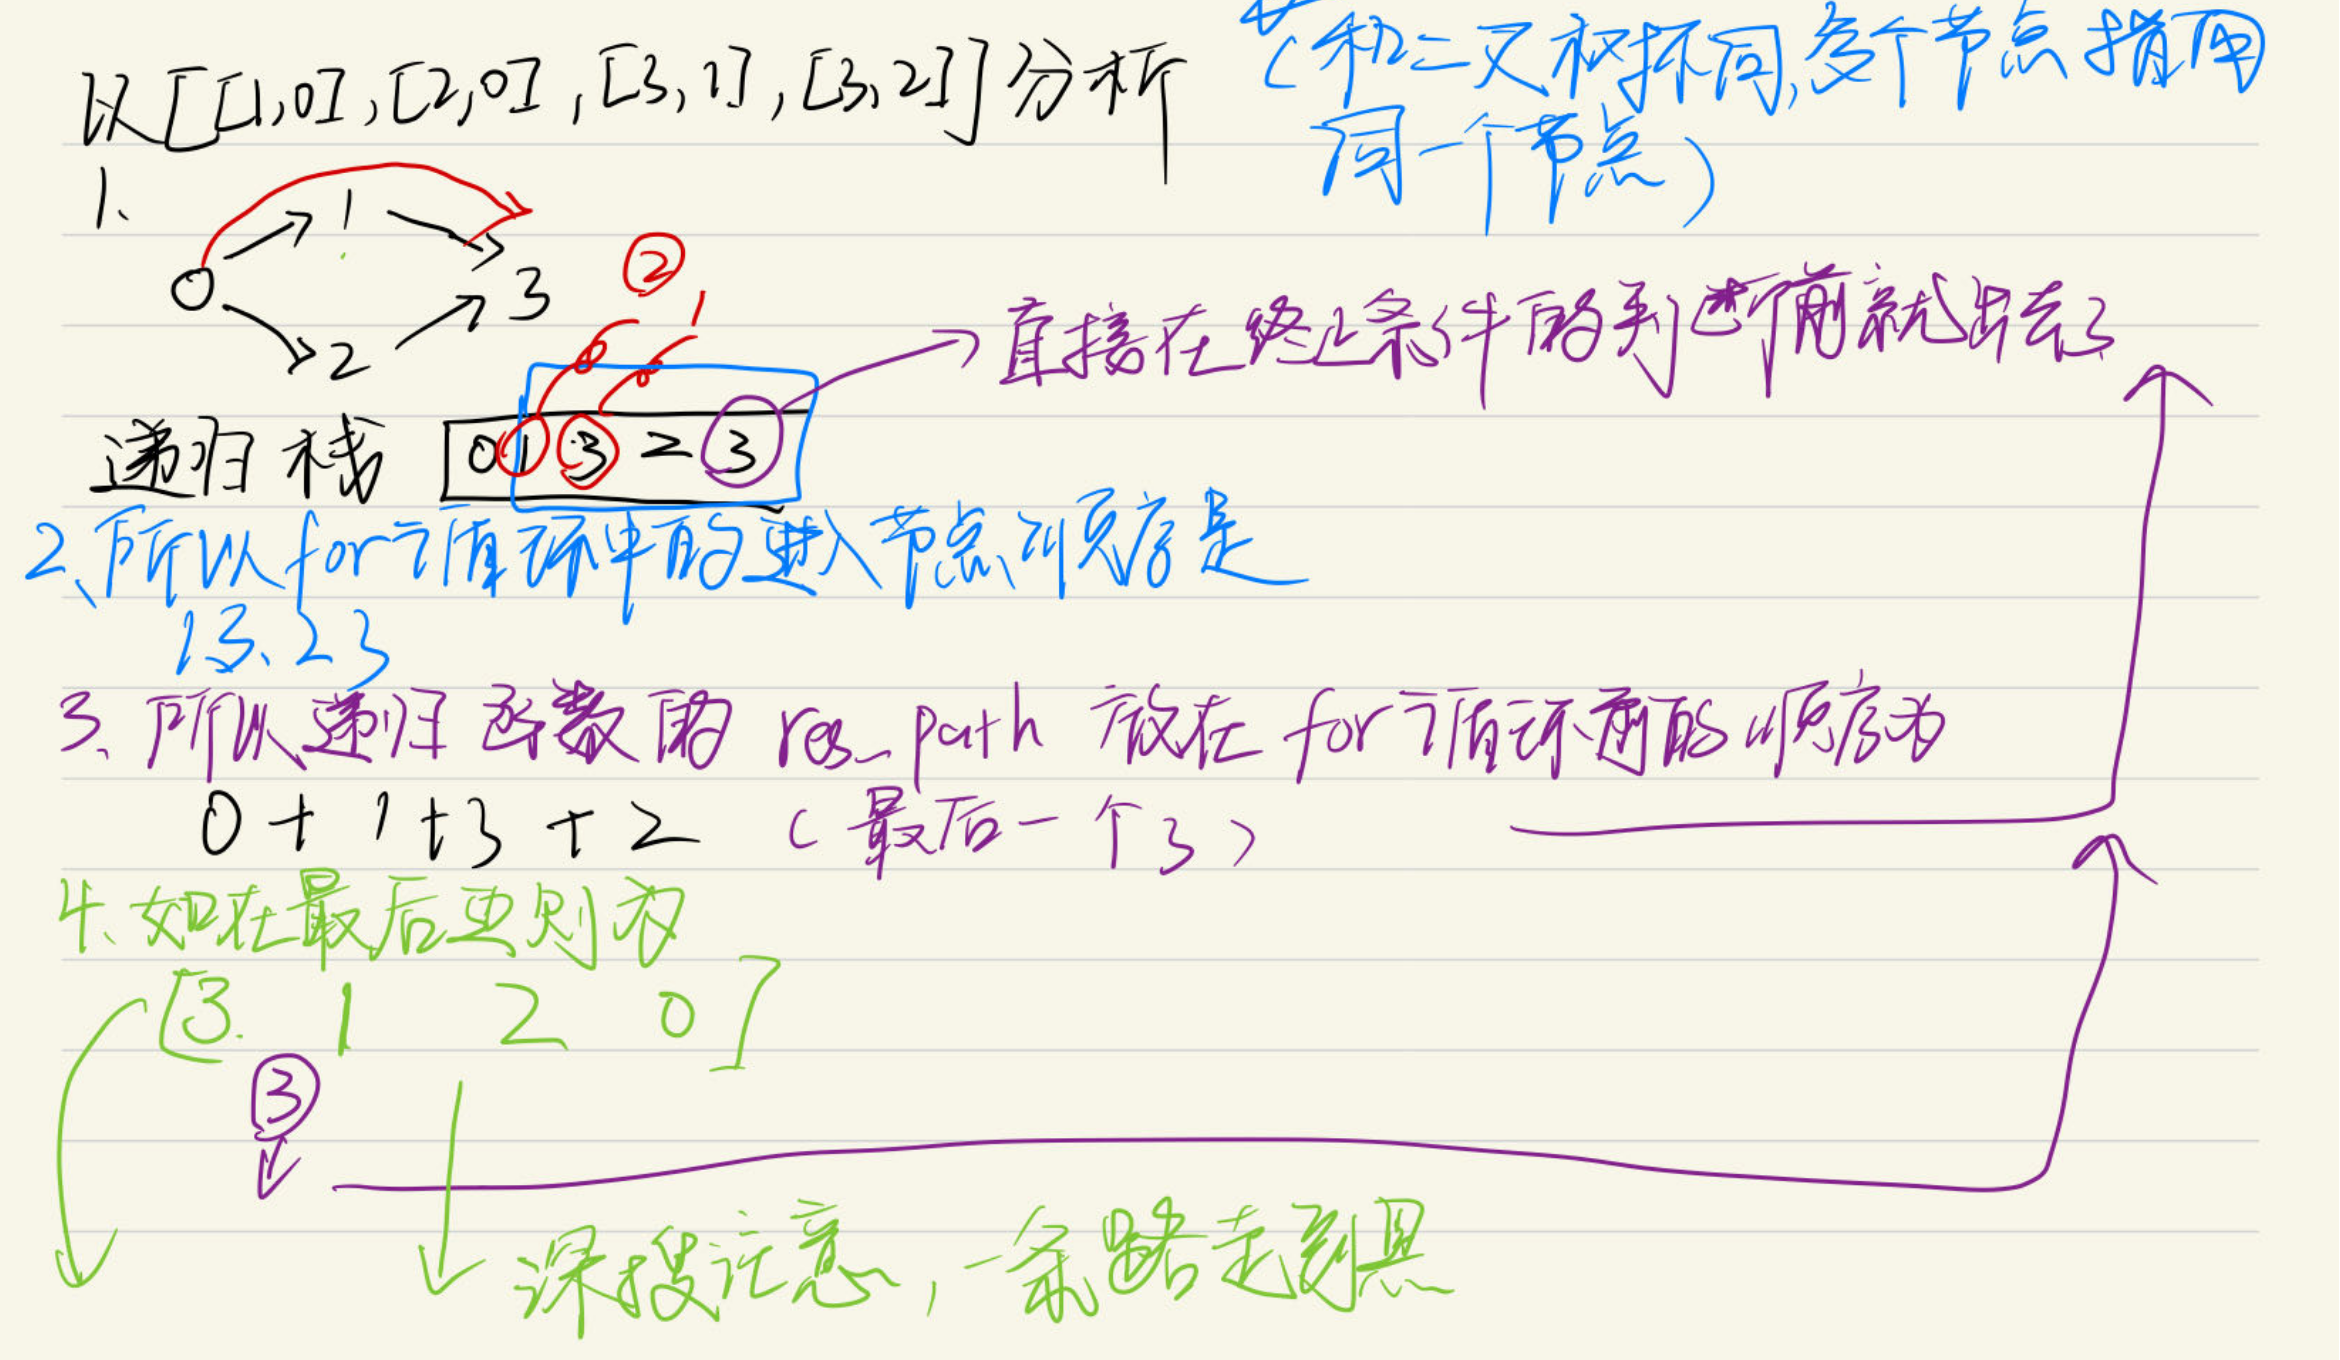 以[[1,0],[2,0],[3,1],[3,2]]分析
(和二叉树不同,多个节点指向
同一个节点)
1、
0 1 2 3
②
1
直接在终止条件的判断前就出去了
递归栈 0 1 3 2 3
2、所以for循环中的进入节点顺序是
13、23
3、所以递归函数的 res_path 放在 for循环前的顺序为
0 + 1 + 3 + 2 (最后一个3)
4、如在最后面则为
[3. 1 2 0]
3
深搜注意,一条路走到黑